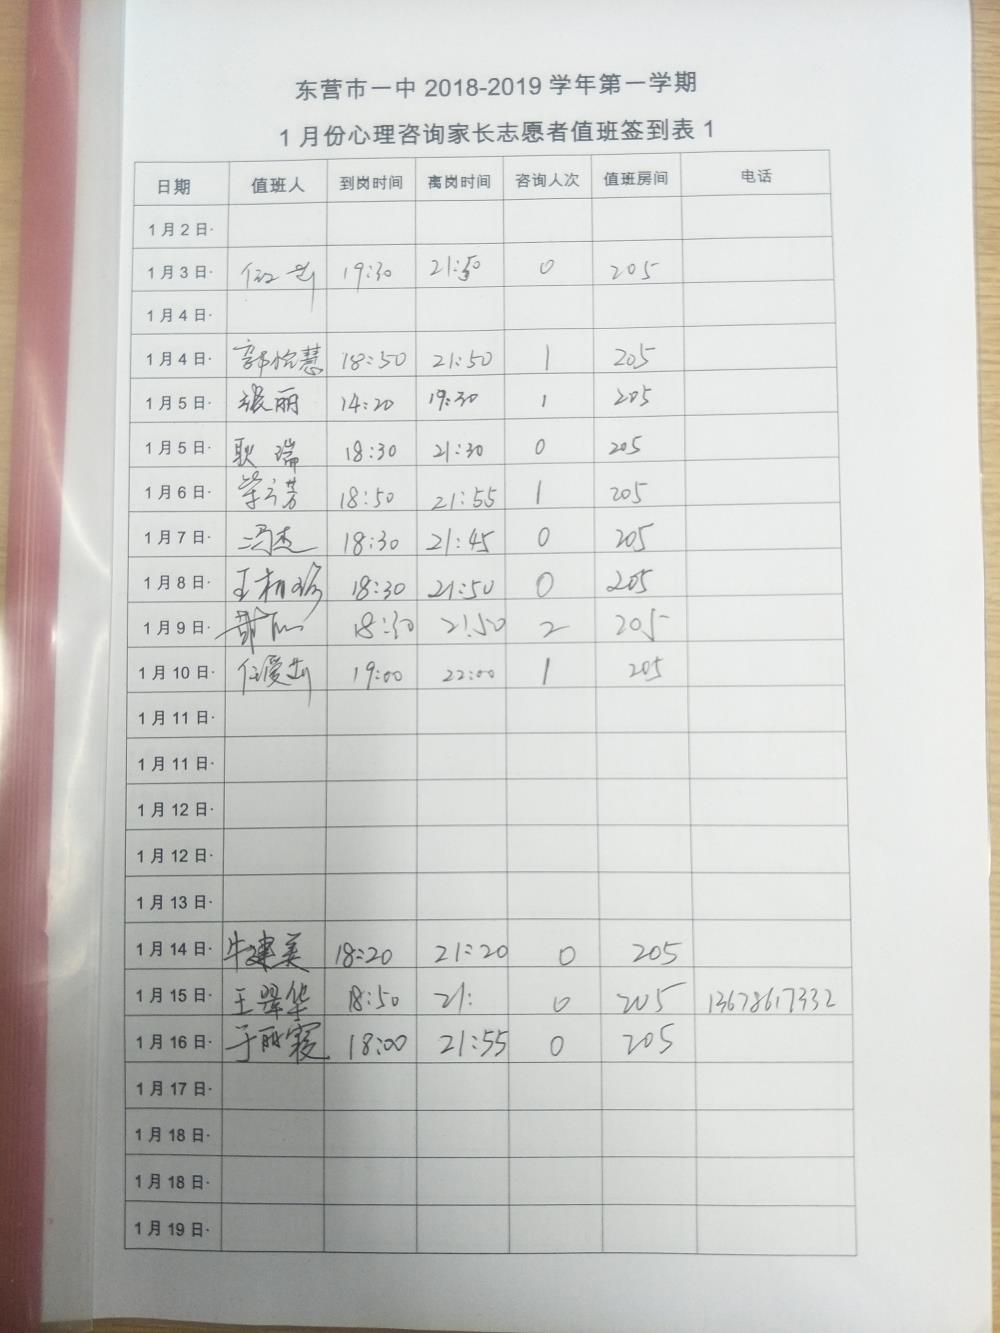 东营市一中 2018-2019 学年第一学期
1 月份心理咨询家长志愿者值班签到表 1
日期 值班人 到岗时间 离岗时间 咨询人次 值班房间 电话
1 月 2 日·
1 月 3 日· 19:30 21:50 0 205
1 月 4 日·
1 月 4 日· 郭怡慧 18:50 21:50 1 205
1 月 5 日· 张丽 14:20 19:30 1 205
1 月 5 日· 耿瑞 18:30 21:30 0 205
1 月 6 日· 18:50 21:55 1 205
1 月 7 日· 冯杰 18:30 21:45 0 205
1 月 8 日· 18:30 21:50 0 205
1 月 9 日· 18:30 21:50 2 205
1 月 10 日· 19:00 22:00 1 205
1 月 11 日·
1 月 11 日·
1 月 12 日·
1 月 12 日·
1 月 13 日·
1 月 14 日· 牛建美 18:20 21:20 0 205
1 月 15 日· 王翠华 18:50 21: 0 205 13678617332
1 月 16 日· 于丽霞 18:00 21:55 0 205
1 月 17 日·
1 月 18 日·
1 月 18 日·
1 月 19 日·